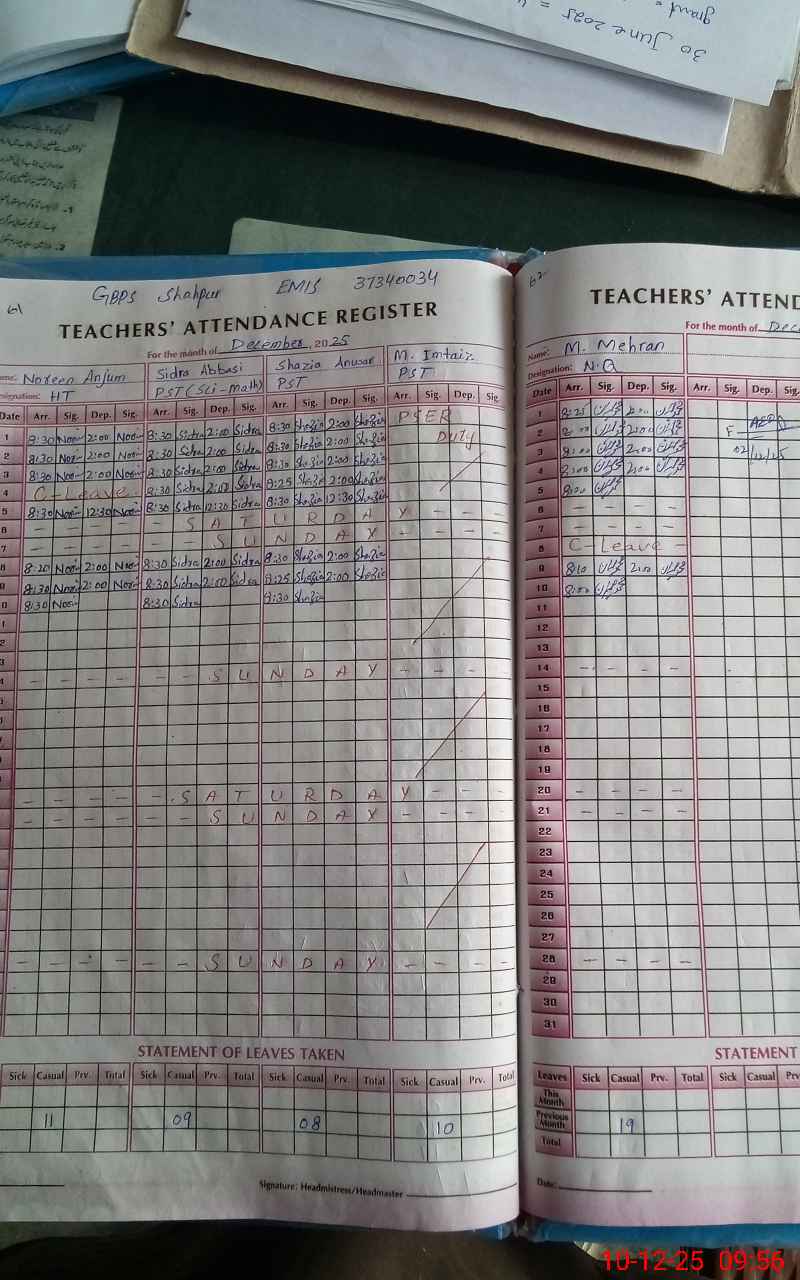 30 June 2025 =
grant =
61
GBPS Shahpur EMIS 37340034
TEACHERS' ATTENDANCE REGISTER
For the month of December, 2025
Name: Noreen Anjum Sidra Abbasi Shazia Anwar M. Imtaiz
Designation: HT PST (Sci-math) PST PST
Date Arr. Sig. Dep. Sig. Arr. Sig. Dep. Sig. Arr. Sig. Dep. Sig. Arr. Sig. Dep. Sig.
1 8:30 Noor 2:00 Noor 8:30 Sidra 2:00 Sidra 8:30 Shazia 2:00 Shazia PSER
2 8:30 Noor 2:00 Noor 8:30 Sidra 2:00 Sidra 8:30 Shazia 2:00 Shazia Duty
3 8:30 Noor 2:00 Noor 8:30 Sidra 2:00 Sidra 8:30 Shazia 2:00 Shazia
4 C-Leave 8:30 Sidra 2:00 Sidra 8:25 Shazia 2:00 Shazia
5 8:30 Noor 12:30 Noor 8:30 Sidra 12:30 Sidra 8:30 Shazia 12:30 Shazia
6 - - - - - S A T U R D A Y - - -
7 - - - - - - S U N D A Y - - - -
8 8:20 Noor 2:00 Noor 8:30 Sidra 2:00 Sidra 8:30 Shazia 2:00 Shazia
9 8:30 Noor 2:00 Noor 8:30 Sidra 2:00 Sidra 8:25 Shazia 2:00 Shazia
0 8:30 Noor 8:30 Sidra 8:30 Shazia
1
2
3
4 - - - - - - S U N D A Y - - - -
- - - - - S A T U R D A Y - - -
- - - - - - S U N D A Y - - - -
- - - - - - S U N D A Y - - - -
STATEMENT OF LEAVES TAKEN
Sick Casual Prv. Total Sick Casual Prv. Total Sick Casual Prv. Total Sick Casual Prv. Total
11 09 08 10
Signature: Headmistress/Headmaster
62
TEACHERS' ATTEND
For the month of Dec
Name: M. Mehran
Designation: N.Q
Arr. Sig. Dep. Sig. Arr. Sig. Dep. Sig.
1 8:25 2:00
2 8:00 2:00
3 8:00 2:00 02/12/25
4 8:00 2:00
5 8:00
6 - - - -
7 - - - -
8 C-Leave -
9 8:10 2:00
10 8:00
11
12
13
14 - - - -
15
16
17
18
19
20 - - - -
21 - - - -
22
23
24
25
26
27
28 - - - -
29
30
31
STATEMENT
Leaves Sick Casual Prv. Total Sick Casual Prv.
This Month
Previous Month 19
Total
Date:
10-12-25 09:56